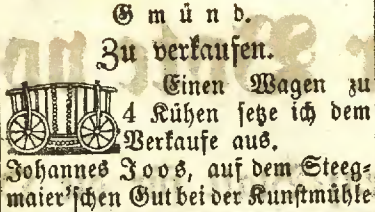 Gmünd.
Zu verkaufen.
Einen Wagen zu
4 Kühen setze ich dem
Verkaufe aus.
Johannes Joos, auf dem Steeg-
maier'schen Gut bei der Kunstmühle